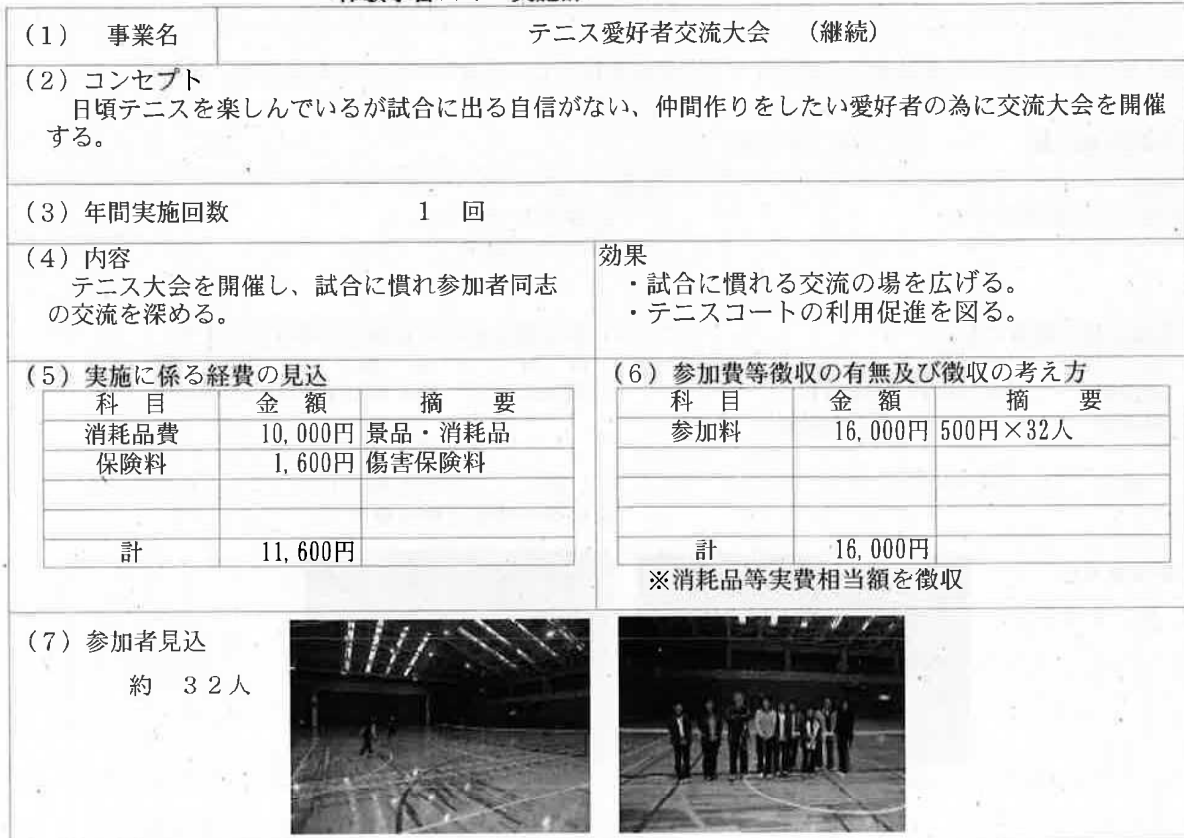 (1) 事業名
テニス愛好者交流大会 (継続)
(2) コンセプト
日頃テニスを楽しんでいるが試合に出る自信がない、仲間作りをしたい愛好者の為に交流大会を開催
する。
(3) 年間実施回数 1 回
(4) 内容
テニス大会を開催し、試合に慣れ参加者同志
の交流を深める。
効果
・試合に慣れる交流の場を広げる。
・テニスコートの利用促進を図る。
(5) 実施に係る経費の見込
科 目 金 額 摘 要
消耗品費 10,000円 景品・消耗品
保険料 1,600円 傷害保険料
計 11,600円
(6) 参加費等徴収の有無及び徴収の考え方
科 目 金 額 摘 要
参加料 16,000円 500円×32人
計 16,000円
※消耗品等実費相当額を徴収
(7) 参加者見込
約 32人